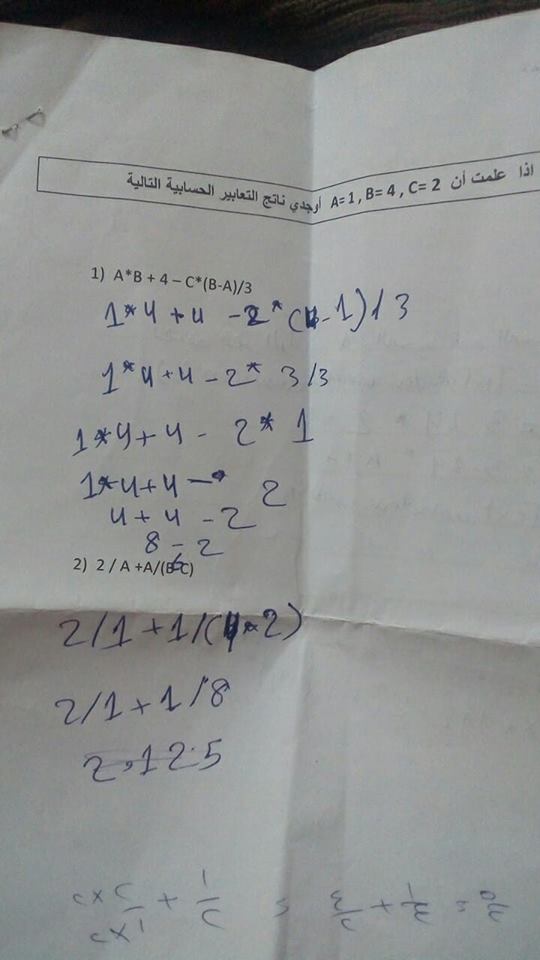 اذا علمت أن A=1 , B= 4 , C= 2 أوجدي ناتج التعابير الحسابية التالية
1) A*B + 4 – C*(B-A)/3
1*4 + 4 - 2* (4-1)/3
1*4+4 - 2* 3/3
1*4+4 - 2* 1
1*4+4 - 2
4 + 4 - 2
8 - 2
6
2) 2 / A +A/(B*C)
2/1 + 1/(4*2)
2/1 + 1/8
2.125